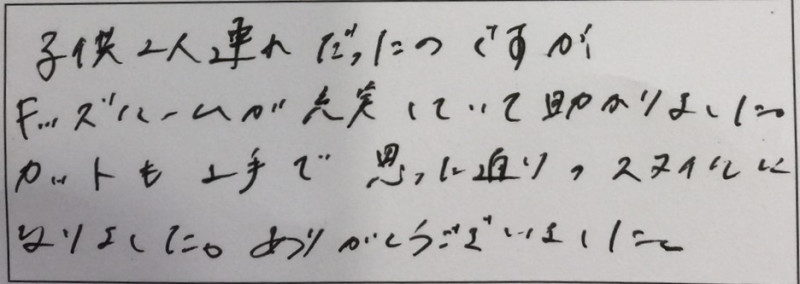 子供2人連れだったのですが
キッズルームが充実していて助かりました。
カットも上手で思った通りのスタイルに
なりました。ありがとうございました。